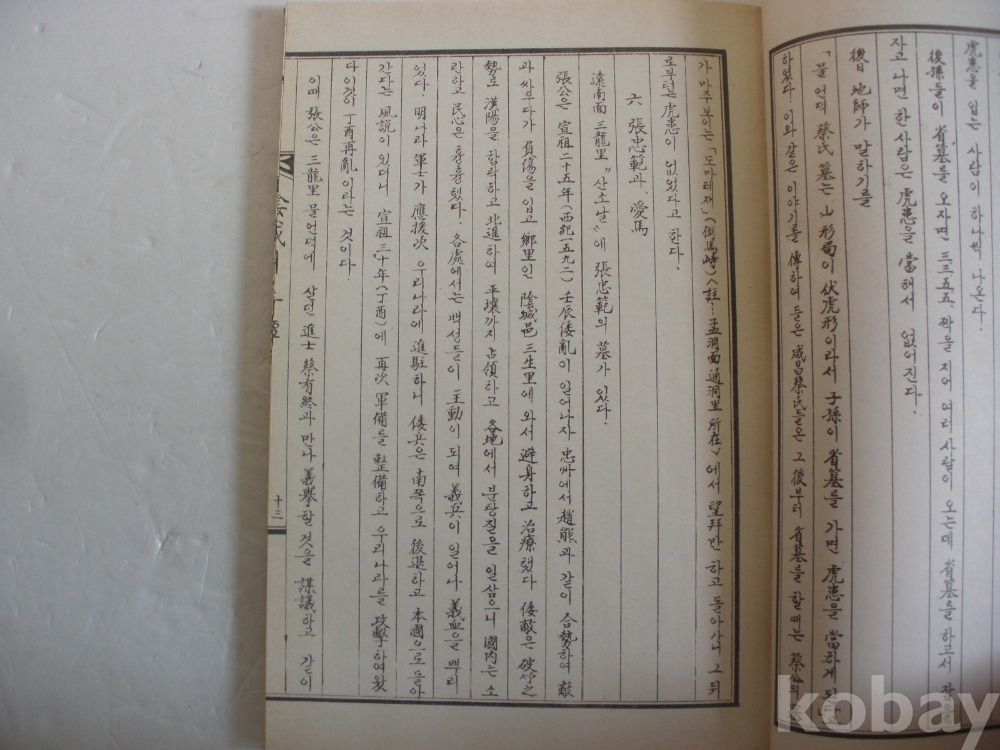 虎患을 입는 사람이 하나씩 생기므로
後孫들이 省墓를 오자면 三三五五、짝을 지어 여러 사람이 오는데 省墓를 하고서 잠을
자고 나면 한 사람은 虎患을 當해서 없어진다.
後日 地師가 말하기를
「물언덕 蔡氏 墓는 山形局이 伏虎形이라서 子孫이 省墓를 가면 虎患을 當하게 된다고
하였다. 이와 같은 이야기를 傳하여 들은 咸昌蔡氏들은 그 後부터 省墓를 할 때는 蔡公의
가 마주 보이는 「도마레재」(倒馬峙)〈註: 孟洞面 通洞里 所在〉에서 望拜만 하고 돌아가니 그 뒤
로부터는 虎患이 없었다고 한다.
六、張忠範과 愛馬
遠南面 三龍里 "산소날"에 張忠範의 墓가 있다.
張公은 宣祖 二十五年(西紀一五九二) 壬辰倭亂이 일어나자 忠州에서 趙熊과 같이 合勢하여 敵
과 싸우다가 負傷을 입고 鄕里인 陰城邑 三生里에 와서 避身하고 治療했다 倭敵은 破竹之
勢로 漢陽을 함락하고 北進하여 平壤까지 占領하고 各地에서 분탕질을 일삼으니 國內는 소
란하고 民心은 흉흉했다. 各處에서는 백성들이 主動이 되여 義兵이 일어나 義血을 뿌리
었다. 明나라 軍士가 應援次 우리나라에 進駐하니 倭兵은 南쪽으로 後退하고 本國으로 돌아
간다는 風說이 있더니 宣祖 三十年(丁酉)에 再次 軍備를 整備하고 우리나라를 攻擊하여 왔
다 이것이 丁酉再亂이라는 것이다.
이때 張公은 三龍里 물언덕에 살던 進士 蔡有終과 만나 義擧할 것을 謀議하고 같이
十三
kobay